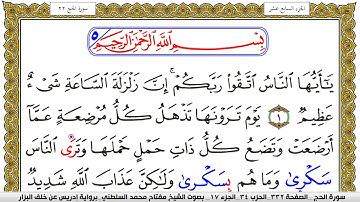 سورة الحج ٢٢
الجزء السابع عشر
بِسْمِ اللَّهِ الرَّحْمَٰنِ الرَّحِيمِ
يَٰٓأَيُّهَا النَّاسُ اتَّقُوا رَبَّكُمْ إِنَّ زَلْزَلَةَ السَّاعَةِ شَىْءٌ
عَظِيمٌ ١ يَوْمَ تَرَوْنَهَا تَذْهَلُ كُلُّ مُرْضِعَةٍ عَمَّا
أَرْضَعَتْ وَتَضَعُ كُلُّ ذَاتِ حَمْلٍ حَمْلَهَا وَتَرَى النَّاسَ
سَكْرِىٰ وَمَا هُم بِسَكْرِىٰ وَلَٰكِنَّ عَذَابَ اللَّهِ شَدِيدٌ
سورة الحج _ الصفحة ٣٣٢ _ الحزب ٣٤ _ الجزء ١٧ _ بصوت الشيخ مفتاح محمد السلطني _ برواية إدريس عن خلف البزار